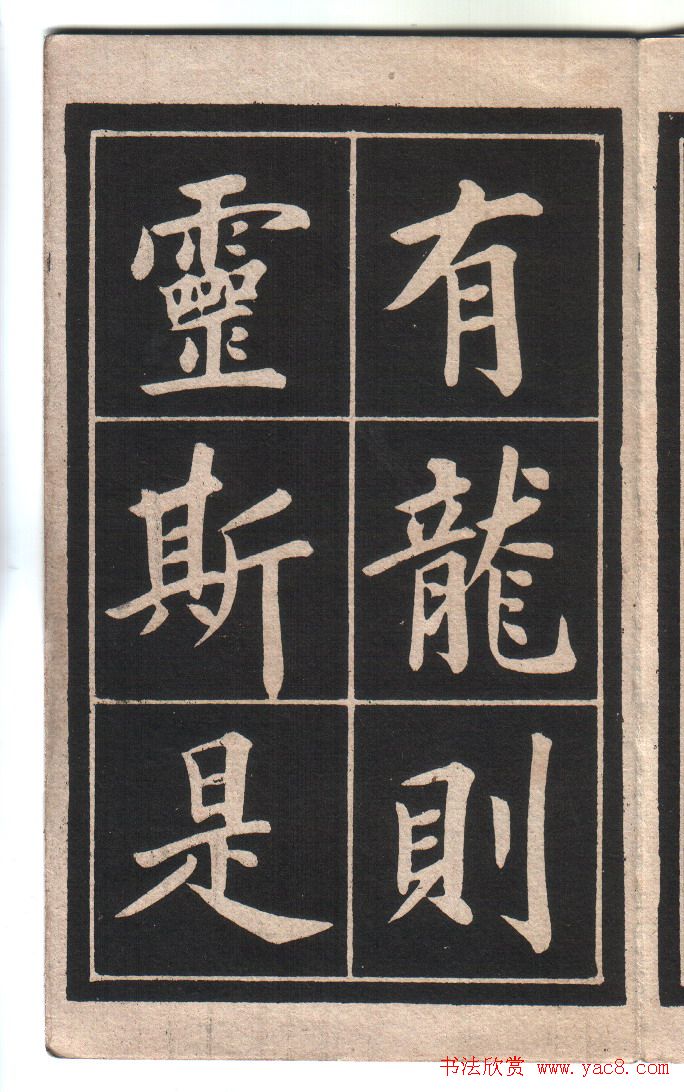 有龍則
靈斯是
书法欣赏 www.yac8.com